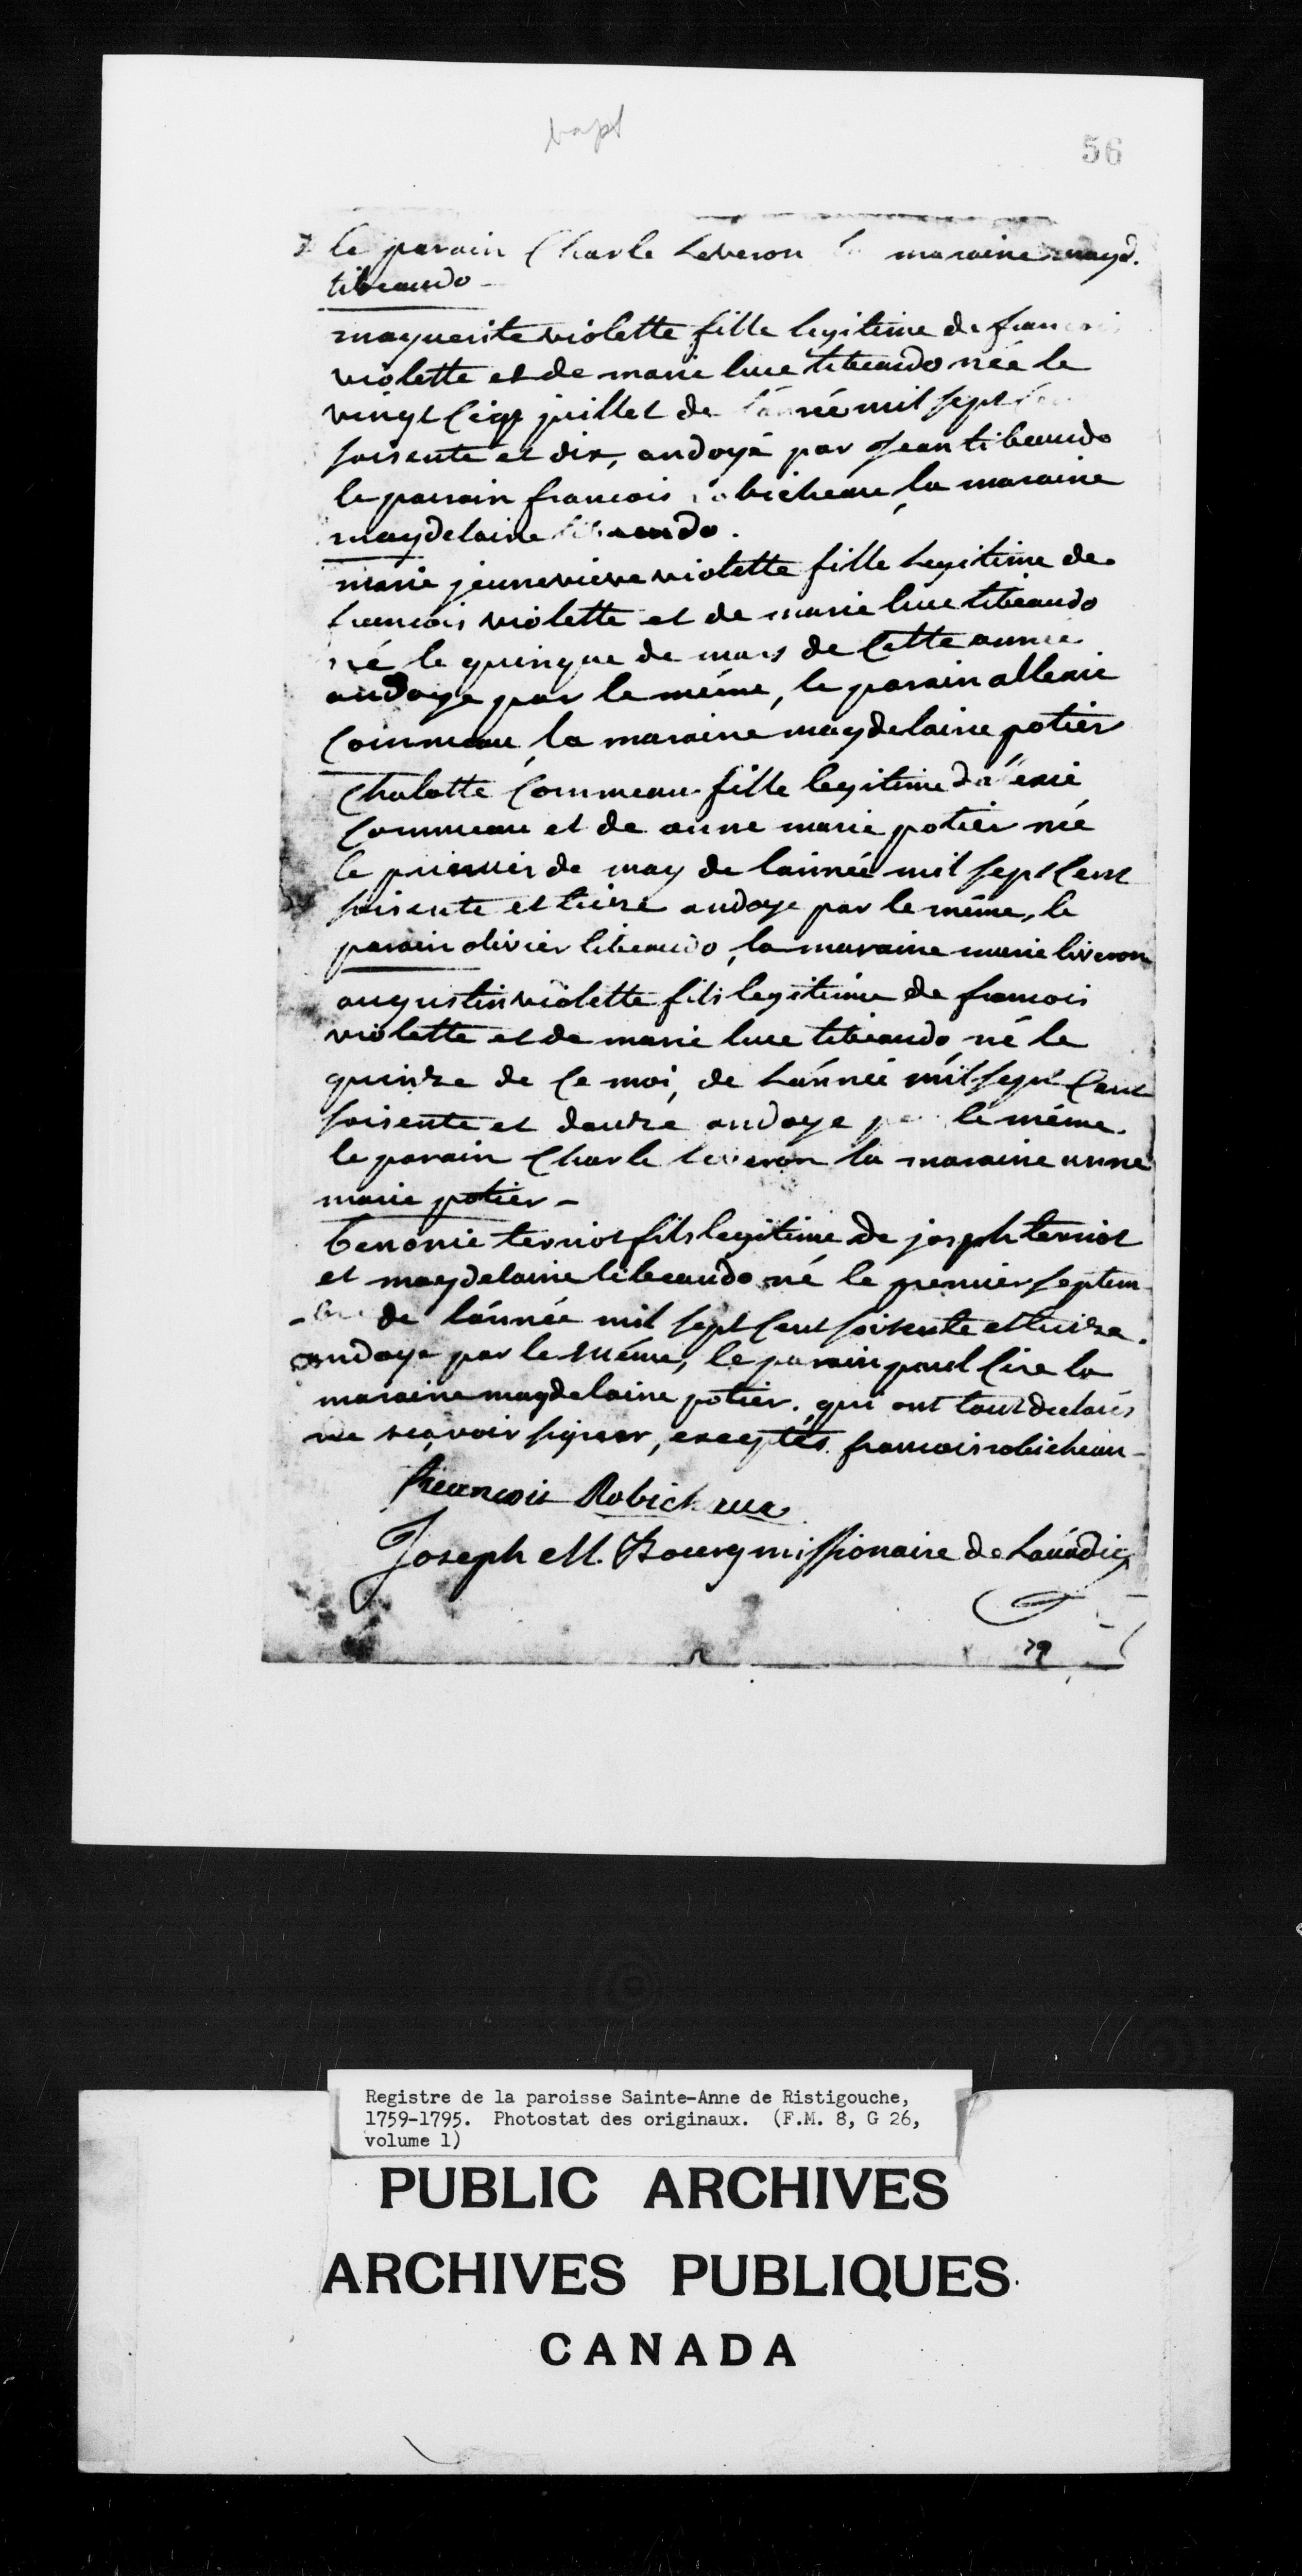 bapt
56
le parain Charle Leveron la maraine magd.
tibeaudo -
maguerite violette fille legitime de francoi
violette et de marie luce tibeaudo née le
vingt juillet de l'année mil sept
soisente et dix, andoyé par Jean tibeaudo
le parain francois robicheau, la maraine
magdelaine tibeaudo.
marie jeunevieve violette fille legitime de
francois violette et de marie luce tibeaudo
né le quinque de mars de Cette année
andoye par le méme, le parain allexie
Commeau, la maraine magdelaine potier
Chalotte Commeau fille legitime d'allexie
Commeau et de anne marie potier né
le premier de may de lánnée mil sept Cent
soisente et treize andoye par le méme, le
parain olivier tibeaudo, la maraine marie liveron
augustin violette fils legitime de francois
violette et de marie luce tibeaudo, né le
quinze de Ce moi, de Lánnée mil sept Cent
soisente et douze andoye par le méme.
le parain Charle leveron la maraine anne
marie potier -
benonie terriot fils legitime de joseph terriot
et magdelaine tibeaudo né le premier septem
-bre de lánnée mil sept Cent soisente et treize.
andoye par le méme, le parain paul Cire la
maraine magdelaine potier. qui ont tout declarés
ne sçavoir signer, exceptés francois robicheau -
francois Robichaux
Joseph M. Bourg missionaire de Láccadie
Registre de la paroisse Sainte-Anne de Ristigouche,
1759-1795. Photostat des originaux. (F.M. 8, G 26,
volume 1)
PUBLIC ARCHIVES
ARCHIVES PUBLIQUES
CANADA